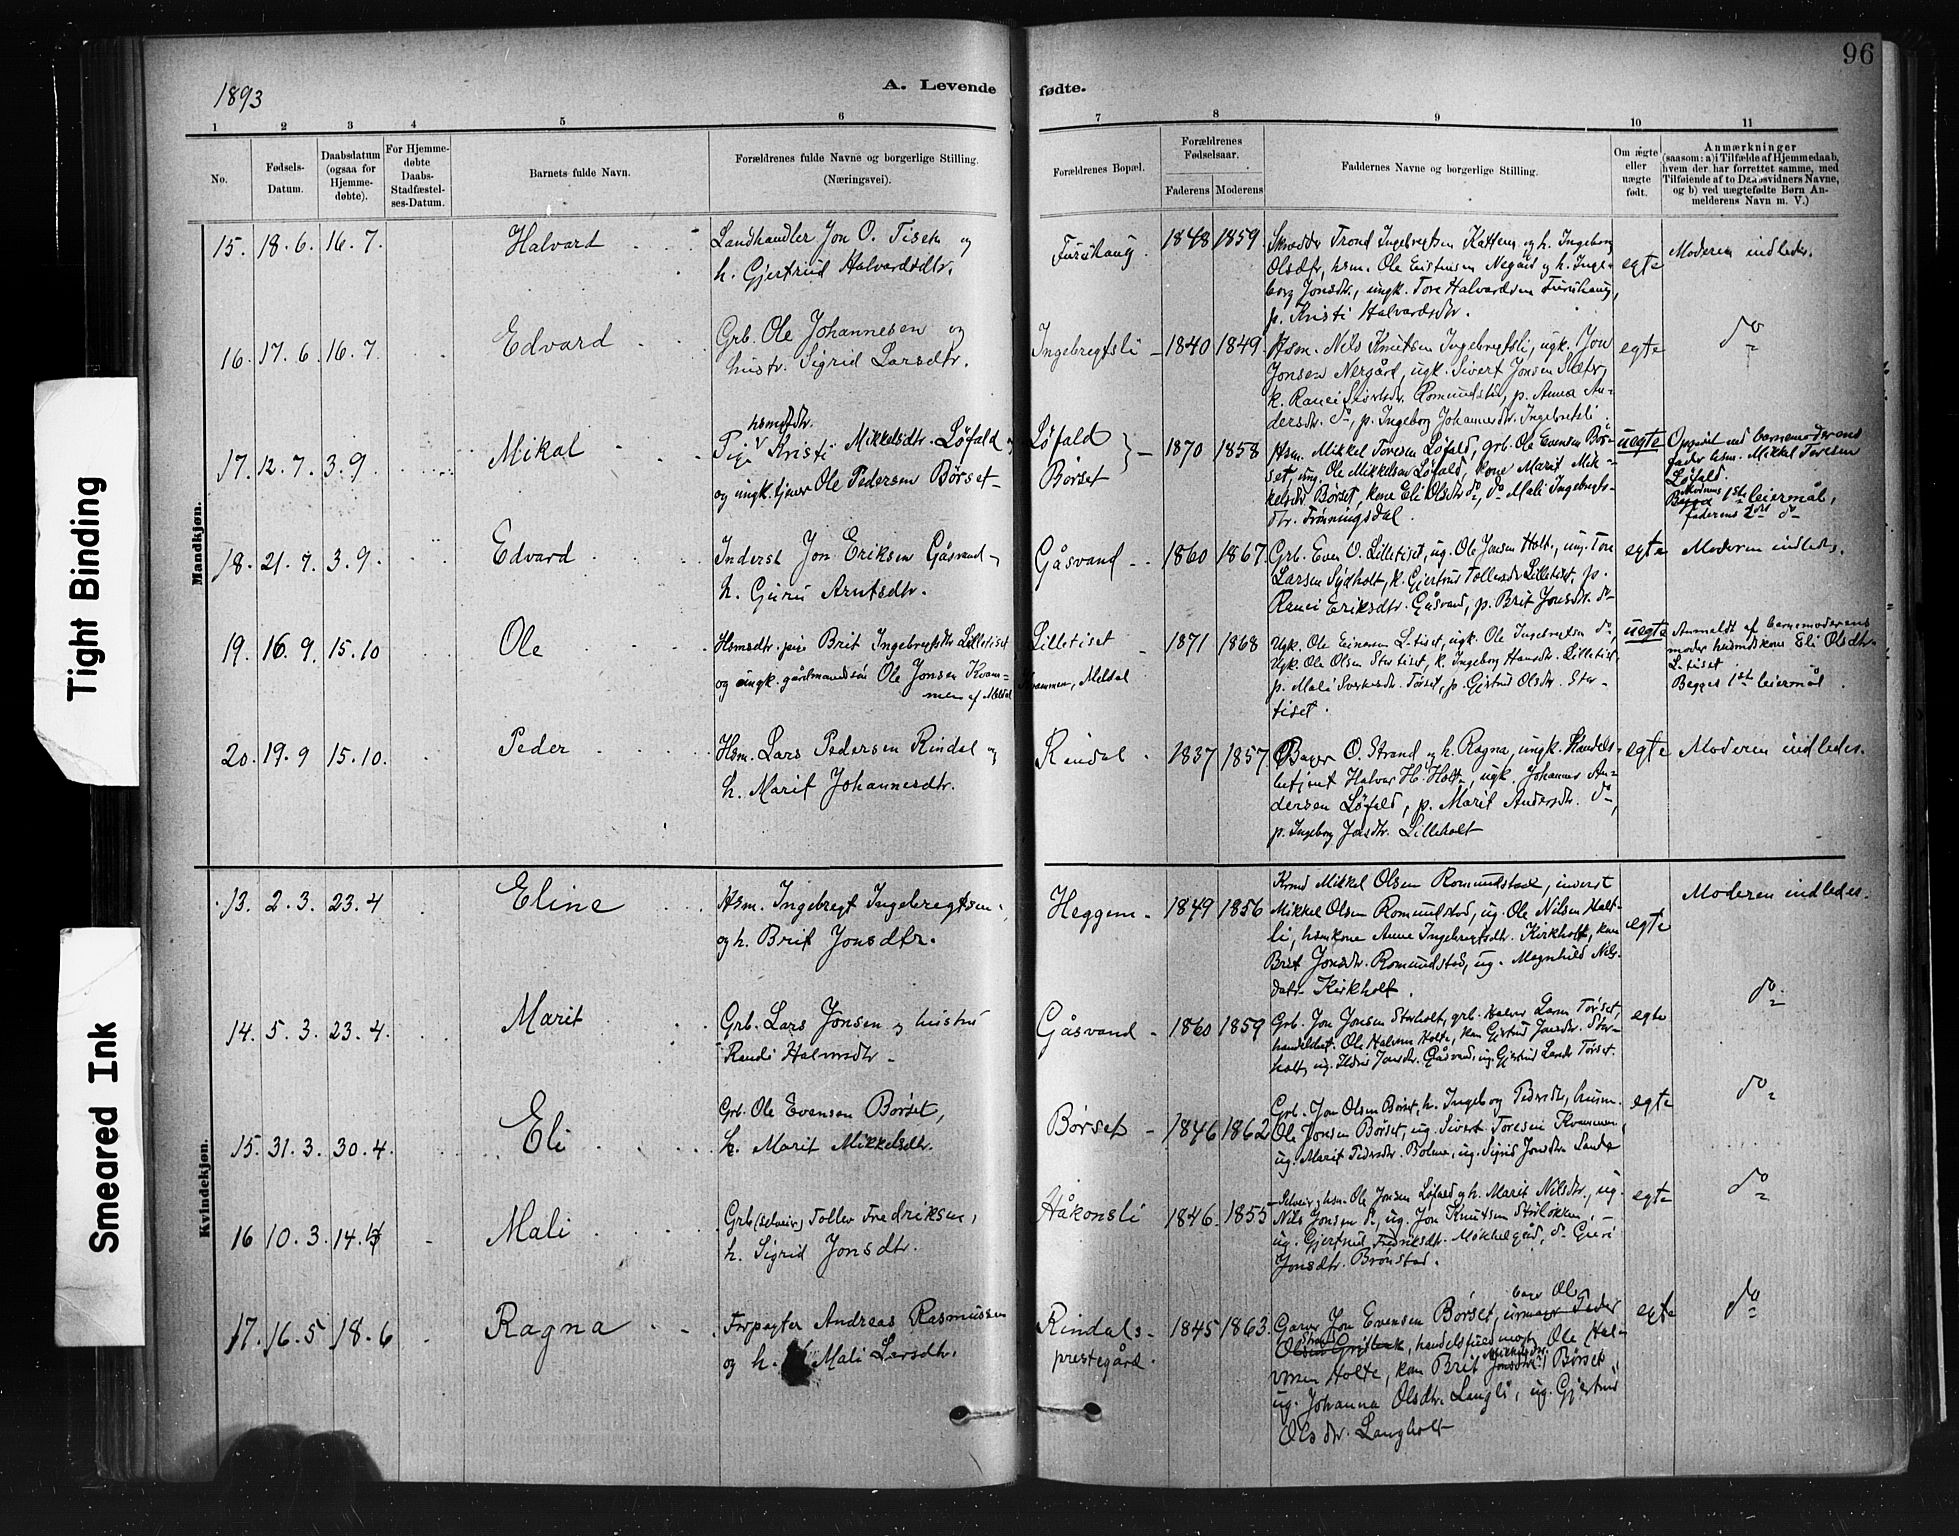 96
1893
A. Levende fødte.
1 2 3 4 5 6 7 8 9 10 11
No.
Fødsels-
Datum.
Daabsdatum
(ogsaa for
Hjemme-
døbte).
For Hjemme-
døbte
Daabs-
Stadfæstel-
ses-Datum.
Barnets fulde Navn.
Forældrenes fulde Navne og borgerlige Stilling.
(Næringsvei).
Forældrenes Bopæl.
Forældrenes
Fødselsaar.
Faderens Moderens
Faddernes Navne og borgerlige Stilling.
Om ægte
eller
uægte
født.
Anmærkninger
(saasom: a) i Tilfælde af Hjemmedaab,
hvem der har forrettet samme, med
Tilføiende af to Daabsvidners Navne,
og b) ved uægtefødte Børn An-
melderens Navn m. V.)
Mandkjøn.
15. 18.6. 16.7. Halvard
Landhandler Jon O. Tiset og
h. Gjertrud Halvardsdtr.
Furuhaug. 1848 1859.
Trond Ingebregtsen Kattem og h. Ingeborg
Olsdtr, hsm. Ole
borg Jonsdtr., ungk. Tore Halvardsen Furuhaug,
p. Kristi Halvardsdtr.
egte
Moderen indledes.
16. 17.6 16.7 Edvard
Grb. Ole Johannesen og
hustr. Sigrid Larsdtr.
Ingebregtsli 1840 1849.
Hsm. Nils Knutsen Ingebregtsli, ugk. Jon
Jonsen Nergård, ugk. Sivert Jonsen Sæter,
k. Romundstad, p. Anna An-
dersdtr. do, p. Ingeborg Johannesdtr. Ingebretsli.
egte
do
17. 12.7. 3.9. Mikal
hsmdtr.
Pige Kristi Mikkelsdtr. Løfald
og ungk. tjener Ole Pedersen Børset
Løfald
Børset
1870 1858
Hsm. Mikkel Toresen Løfald, grb. Ole Evensen Bør-
set, ung. Ole Mikkelsen Løfald, kone Marit Mik-
kelsdtr Børset, kone Eli Olsdtr do, do Mali Ingebregts-
dtr. Trønningsdal.
uegte
Opgivet ved barnemoderens
fader hsm. Mikkel Toresen
Løfald.
Moderens 1ste leiermål,
faderens 2det do
18. 21.7. 3.9. Edvard
Inderst Jon Eriksen Gåsvand
h. Guru Arntsdtr.
Gåsvand 1860 1867.
Grb. Even O. Lilletiset, ug. Ole Jonsen Holt, ung. Tore
Larsen Sydholt, k. Gjertrud Tollevsdtr Lilletiset, p.
Eriksdtr. Gåsvand, p. Brit Jonsdtr. do
egte
Moderen indledes.
19. 16.9. 15.10 Ole
Hsmsdtr. pige Brit Ingebregtsdtr Lilletiset
og ungk. gårdmandssøn Ole Jonsen Kvam-
men af Meldal
Lilletiset
Kvammen, Meldal
1871 1868
Ugk. Ole Einarsen L-tiset, ugk. Ole Ingebretsen do,
Ugk. Ole Olsen Stortiset, k. Ingeborg Hansdtr. Lilletiset,
p. Mali Sverkesdtr. Tørset, p. Gjertrud Olsdtr. Stor-
tiset.
uegte
Anmeldt af barnemoderens
moder husmdskone Eli Olsdtr
L-tiset
Begges 1ste leiermål.
20. 19.9 15.10. Peder
Hsm. Lars Pedersen Rindal og
h. Marit Johannesdtr.
Rindal 1837 1857
O. Strand og h. Ragna, ungk. Handels-
betjent Halvor H. Holt, ugk. Johannes An-
dersen Løfald, p. Marit Andersdtr. do,
p. Ingeborg Jonsdtr. Lilleholt
egte
Moderen indledes.
Kvindekjøn.
13. 2.3. 23.4 Eline
Hsm. Ingebregt Ingebregtsen
og h. Brit Jonsdtr.
Heggem 1849 1856
Mikkel Olsen Romundstad, inderst
Mikkel Olsen Romundstad, ug. Ole Nilsen Halt-
li, hsmkone Anne Ingebregtsdtr. Kirkholt, kone
Brit Jonsdtr. Romundstad, ug. Magnhild Nils-
datr. Kirkholt.
egte
Moderen indledes.
14. 5.3. 23.4. Marit
Grb. Lars Jonsen og hustru
Randi Halvorsdtr.
Gåsvand 1860 1859
Grb. Jon Jonsen Storholt, grb. Halvor Larsen Tørset,
handelsbet. Ole Halvorsen Holte, kone Gjertrud Jonsdtr. Stor-
holt, ug. Jonsdtr. Gåsvand, ug. Gjertrud Larsdtr Tørset.
egte
do
15. 31.3. 30.4 Eli
Grb. Ole Evensen Børset,
h. Marit Mikkelsdtr.
Børset 1846 1862
Grb. Jon Olsen Børset, h. Ingeborg Pedersdtr, husm.
Ole Jonsen Børset, ug. Sivert Toresen Kvammen,
ug. Marit Pedersdtr. Bolme, ug. Sigrid Jonsdtr. Sande
egte
do
16 10.3. 14. Mali
Grb (selveier) Tollev Fredriksen,
h. Sigrid Jonsdtr.
Håkonsli 1846. 1855
Selveier, hsm. Ole Jonsen Løfald og h. Marit Nilsdtr., ug.
Nils Jonsen do, ug. Jon Knutsen Storløkken,
ug. Gjertrud Fredriksdtr. Mikkelgård, do Guri
Jonsdtr. Brønstad.
egte
do
17. 16.5 18.6 Ragna
Forpagter Andreas Rasmussen
og h. Mali Larsdtr.
Rindals
prestegård.
1845 1863.
Garver Jon Evensen Børset, Ole
Strand, handelsfuldmægt. Ole Hal-
vorsen Holte, kone Brit Mikkelsdtr. Børset,
ug. Johanna Olsdtr. Langli, ug. Gjertrud
Olsdtr. Langholt
egte
do
Tight Binding
Smeared Ink